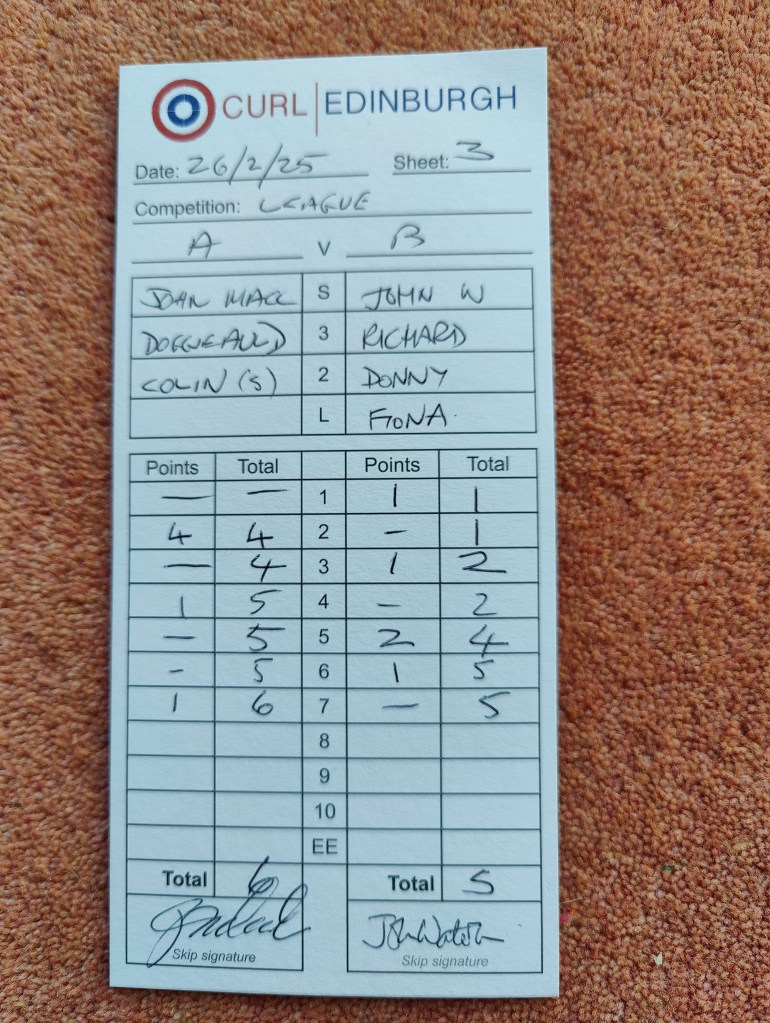 CURL EDINBURGH
Date: 26/2/25 Sheet: 3
Competition: LEAGUE
A V B
JOHN MACC S JOHN W
3 RICHARD
COLIN (S) 2 DONNY
L FIONA
Points Total Points Total
— — 1 1 1
4 4 2 - 1
— 4 3 1 2
1 5 4 - 2
— 5 5 2 4
- 5 6 1 5
1 6 7 — 5
8
9
10
EE
Total 6 Total 5
Skip signature Skip signature